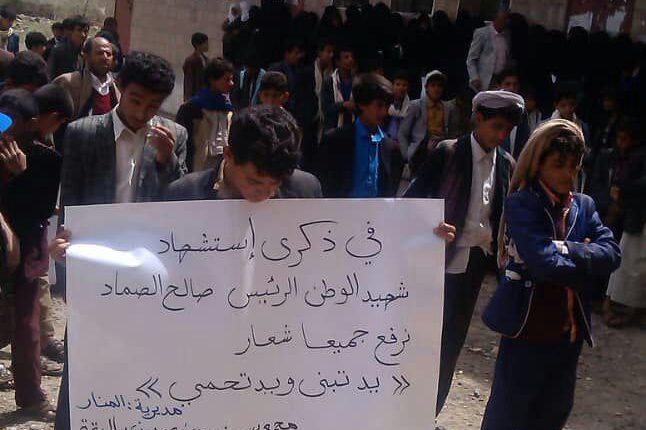 في ذكرى إستشهاد
شهيد الوطن الرئيس صالح الصماد
نرفع جميعا شعار
« يد تبنى ويد تحمي »
مديرية: المنار